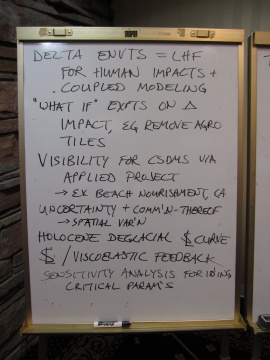 DELTA ENVTS = LHF
FOR HUMAN IMPACTS +
COUPLED MODELING
"WHAT IF" EXPTS ON Δ
IMPACT, EG REMOVE AGRO
TILES
VISIBILITY FOR CSDMS VIA
APPLIED PROJECT
→ EX BEACH NOURISHMENT, CA
UNCERTAINTY + COMM'N THEREOF
→ SPATIAL VAR'N
HOLOCENE DEGLACIAL CURVE
/VISCOELASTIC FEEDBACK
SENSITIVITY ANALYSIS FOR ID'ING
CRITICAL PARAM'S